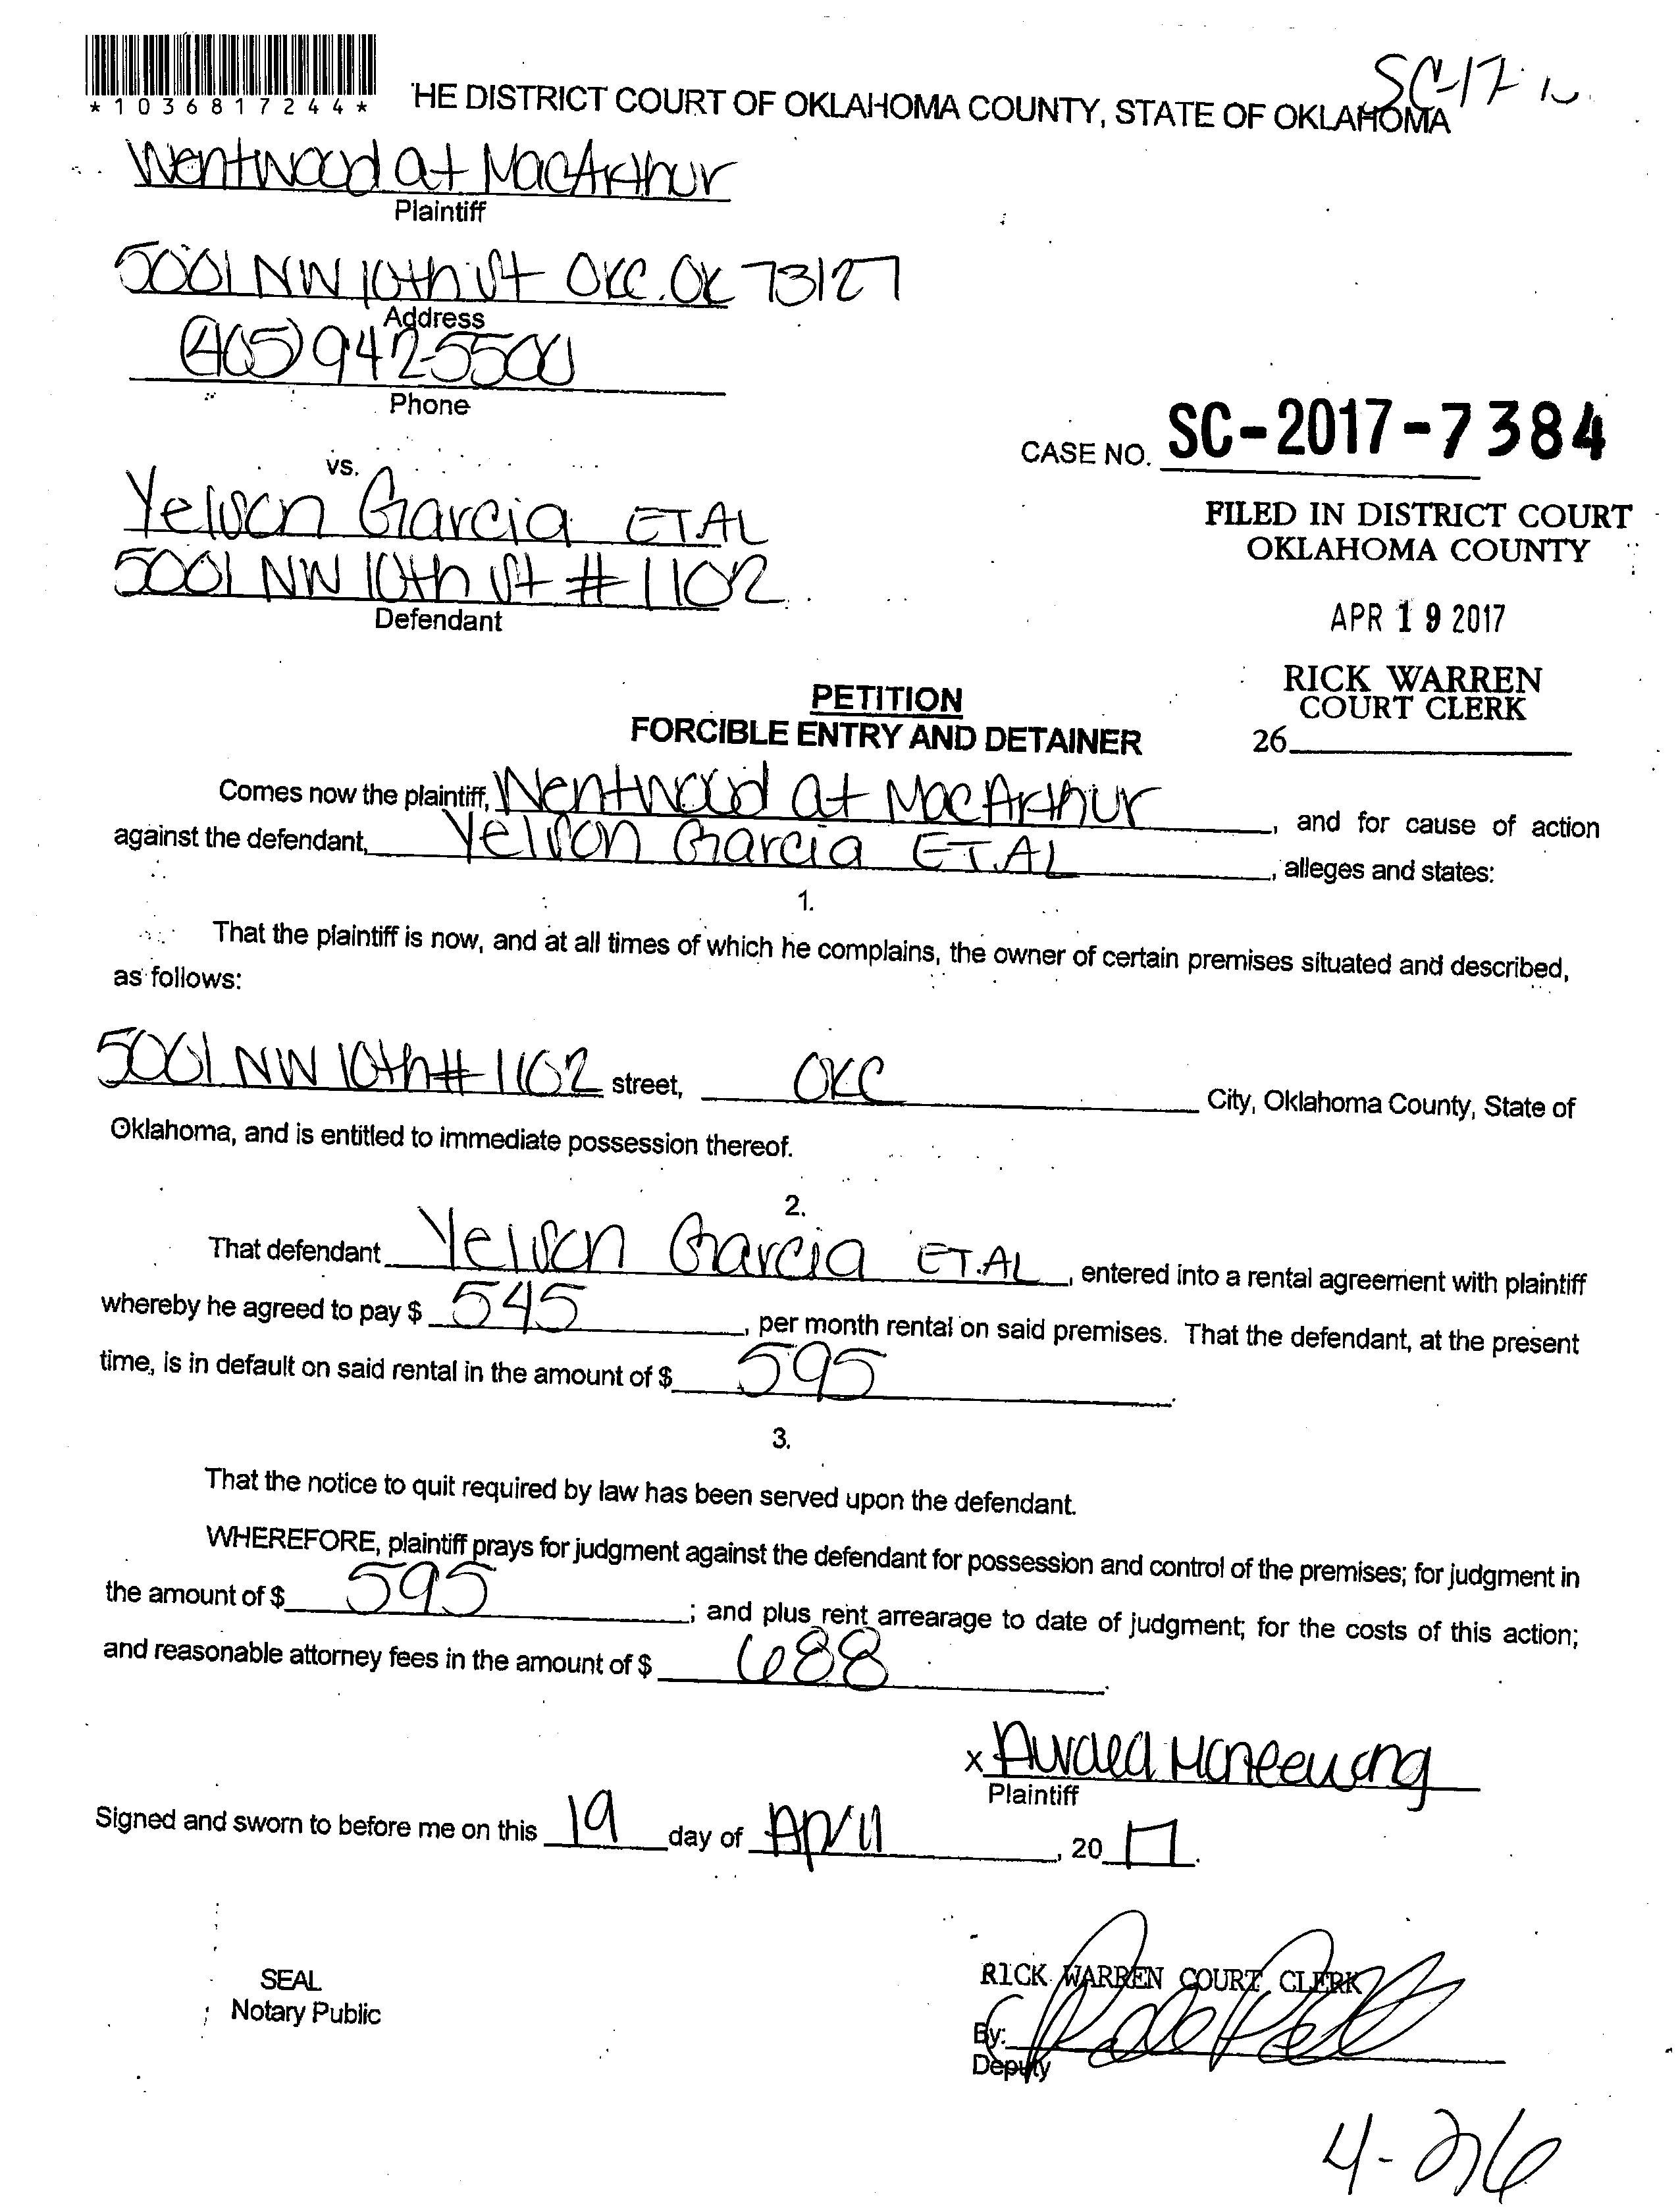 *1036817244*
SC-17
HE DISTRICT COURT OF OKLAHOMA COUNTY, STATE OF OKLAHOMA
Wentwood at MacArthur
Plaintiff
5001 NW 10th St OKC. OK 73127
Address
(405) 942-5500
Phone
CASE NO. SC-2017-7384
vs.
Yelson Garcia ET AL
5001 NW 10th St # 1102
Defendant
FILED IN DISTRICT COURT
OKLAHOMA COUNTY
APR 19 2017
RICK WARREN
COURT CLERK
26
PETITION
FORCIBLE ENTRY AND DETAINER
Comes now the plaintiff, Wentwood at MacArthur, and for cause of action
against the defendant, Yelson Garcia ET.AL, alleges and states:
1.
That the plaintiff is now, and at all times of which he complains, the owner of certain premises situated and described,
as follows:
5001 NW 10th # 1102 street, OKC City, Oklahoma County, State of
Oklahoma, and is entitled to immediate possession thereof.
2.
That defendant Yelson Garcia ET.AL, entered into a rental agreement with plaintiff
whereby he agreed to pay $ 545, per month rental on said premises. That the defendant, at the present
time, is in default on said rental in the amount of $ 595.
3.
That the notice to quit required by law has been served upon the defendant.
WHEREFORE, plaintiff prays for judgment against the defendant for possession and control of the premises; for judgment in
the amount of $ 595; and plus rent arrearage to date of judgment; for the costs of this action;
and reasonable attorney fees in the amount of $ 688.
x
Plaintiff
Signed and sworn to before me on this 19 day of April, 20 17.
SEAL
Notary Public
RICK WARREN COURT CLERK
By:
Deputy
4-26